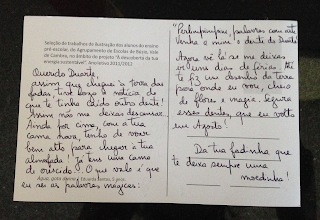 Seleção de trabalhos de ilustração dos alunos do ensino
pré-escolar, do Agrupamento de Escolas de
de Coimbra, no âmbito do projeto "A descoberta da tua
energia sustentável". Ano letivo 2011/2012
Querido Duarte,
assim que cheguei à torre das
fadas tive logo a notícia de
que te tinha caído outro dente!
Assim não me deixas descansar...
Ainda por cima, com a tua
cama nova, tenho de voar
bem alto para chegar à tua
almofada! Já tens uma cama
de crescido!. O que vale é que
eu sei as palavras mágicas:
Água, pelo aluno Eduardo 5 anos.
"Perlimpimpim, palavras com arte
venha a mim o dente do Duarte"
Agora vê lá se me deixas
ir uns dias de férias. Ali
te fiz um desenho da terra
para onde eu vou, cheia
de flores e magia. Segura
esse dente, que eu volto
em Agosto!
Da tua fadinha que
te deixa sempre uma
moedinha!